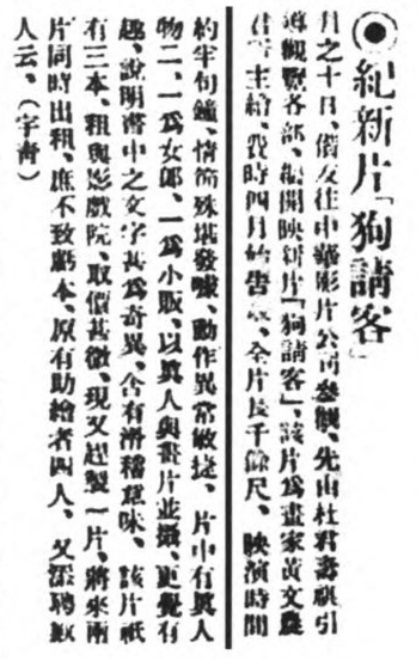 ◉紀新片「狗請客」
月之十日、偕友往中華影片公司參觀、先由杜君引
導觀覽各部、繼開映新片「狗請客」、該片爲畫家黃文農
君主繪、費時四月始告、全片長千餘尺、映演時間
約半句鐘、情節殊堪發噱、動作異常敏捷、片中有眞人
物二、一爲女郎、一爲小販、以眞人與畫片並攝、更覺有
趣、說明書中之文字甚爲奇異、含有滑稽意味、該片祇
有三本、租與影戲院、取價甚微、現又趕製一片、將來兩
片同時出租、庶不致虧本、原有助繪者四人、又添聘數
人云、（宇）